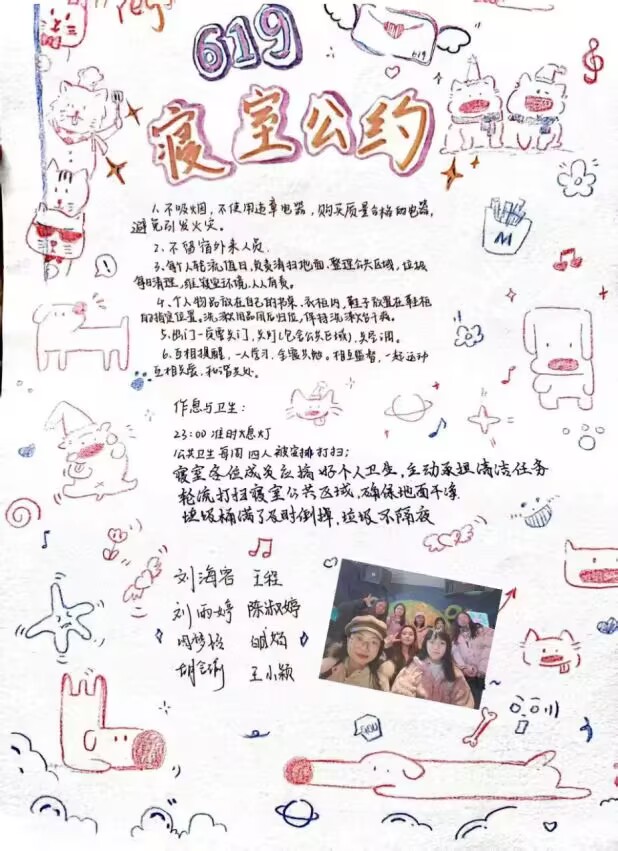 619
寝室公约
619
1. 不吸烟，不使用违章电器，购买质量合格的电器，
避免引发火灾。
2. 不留宿外来人员.
3. 每个人轮流值日，负责清扫地面，整理公共区域，垃圾
每日清理，维寝室环境，人人有责。
4. 个人物品放在自己的书桌、衣柜内，鞋子放置在鞋柜
的指定位置，洗漱用品用后归位，保持洗漱台干爽。
5. 出门一定要关门，关灯(包含公共区域)、关空调。
6. 互相提醒，一人学习，全寝共勉。相互监督，一起运动
互相关爱，和谐共处。
作息与卫生：
23:00 准时熄灯
公共卫生每周四人被安排打扫；
寝室各位成员应搞好个人卫生，主动承担清洁任务
轮流打扫寝室公共区域，确保地面干净
垃圾桶满了及时倒掉，垃圾不隔夜
刘海容 王程
刘雨婷 陈淑婷
王小颖